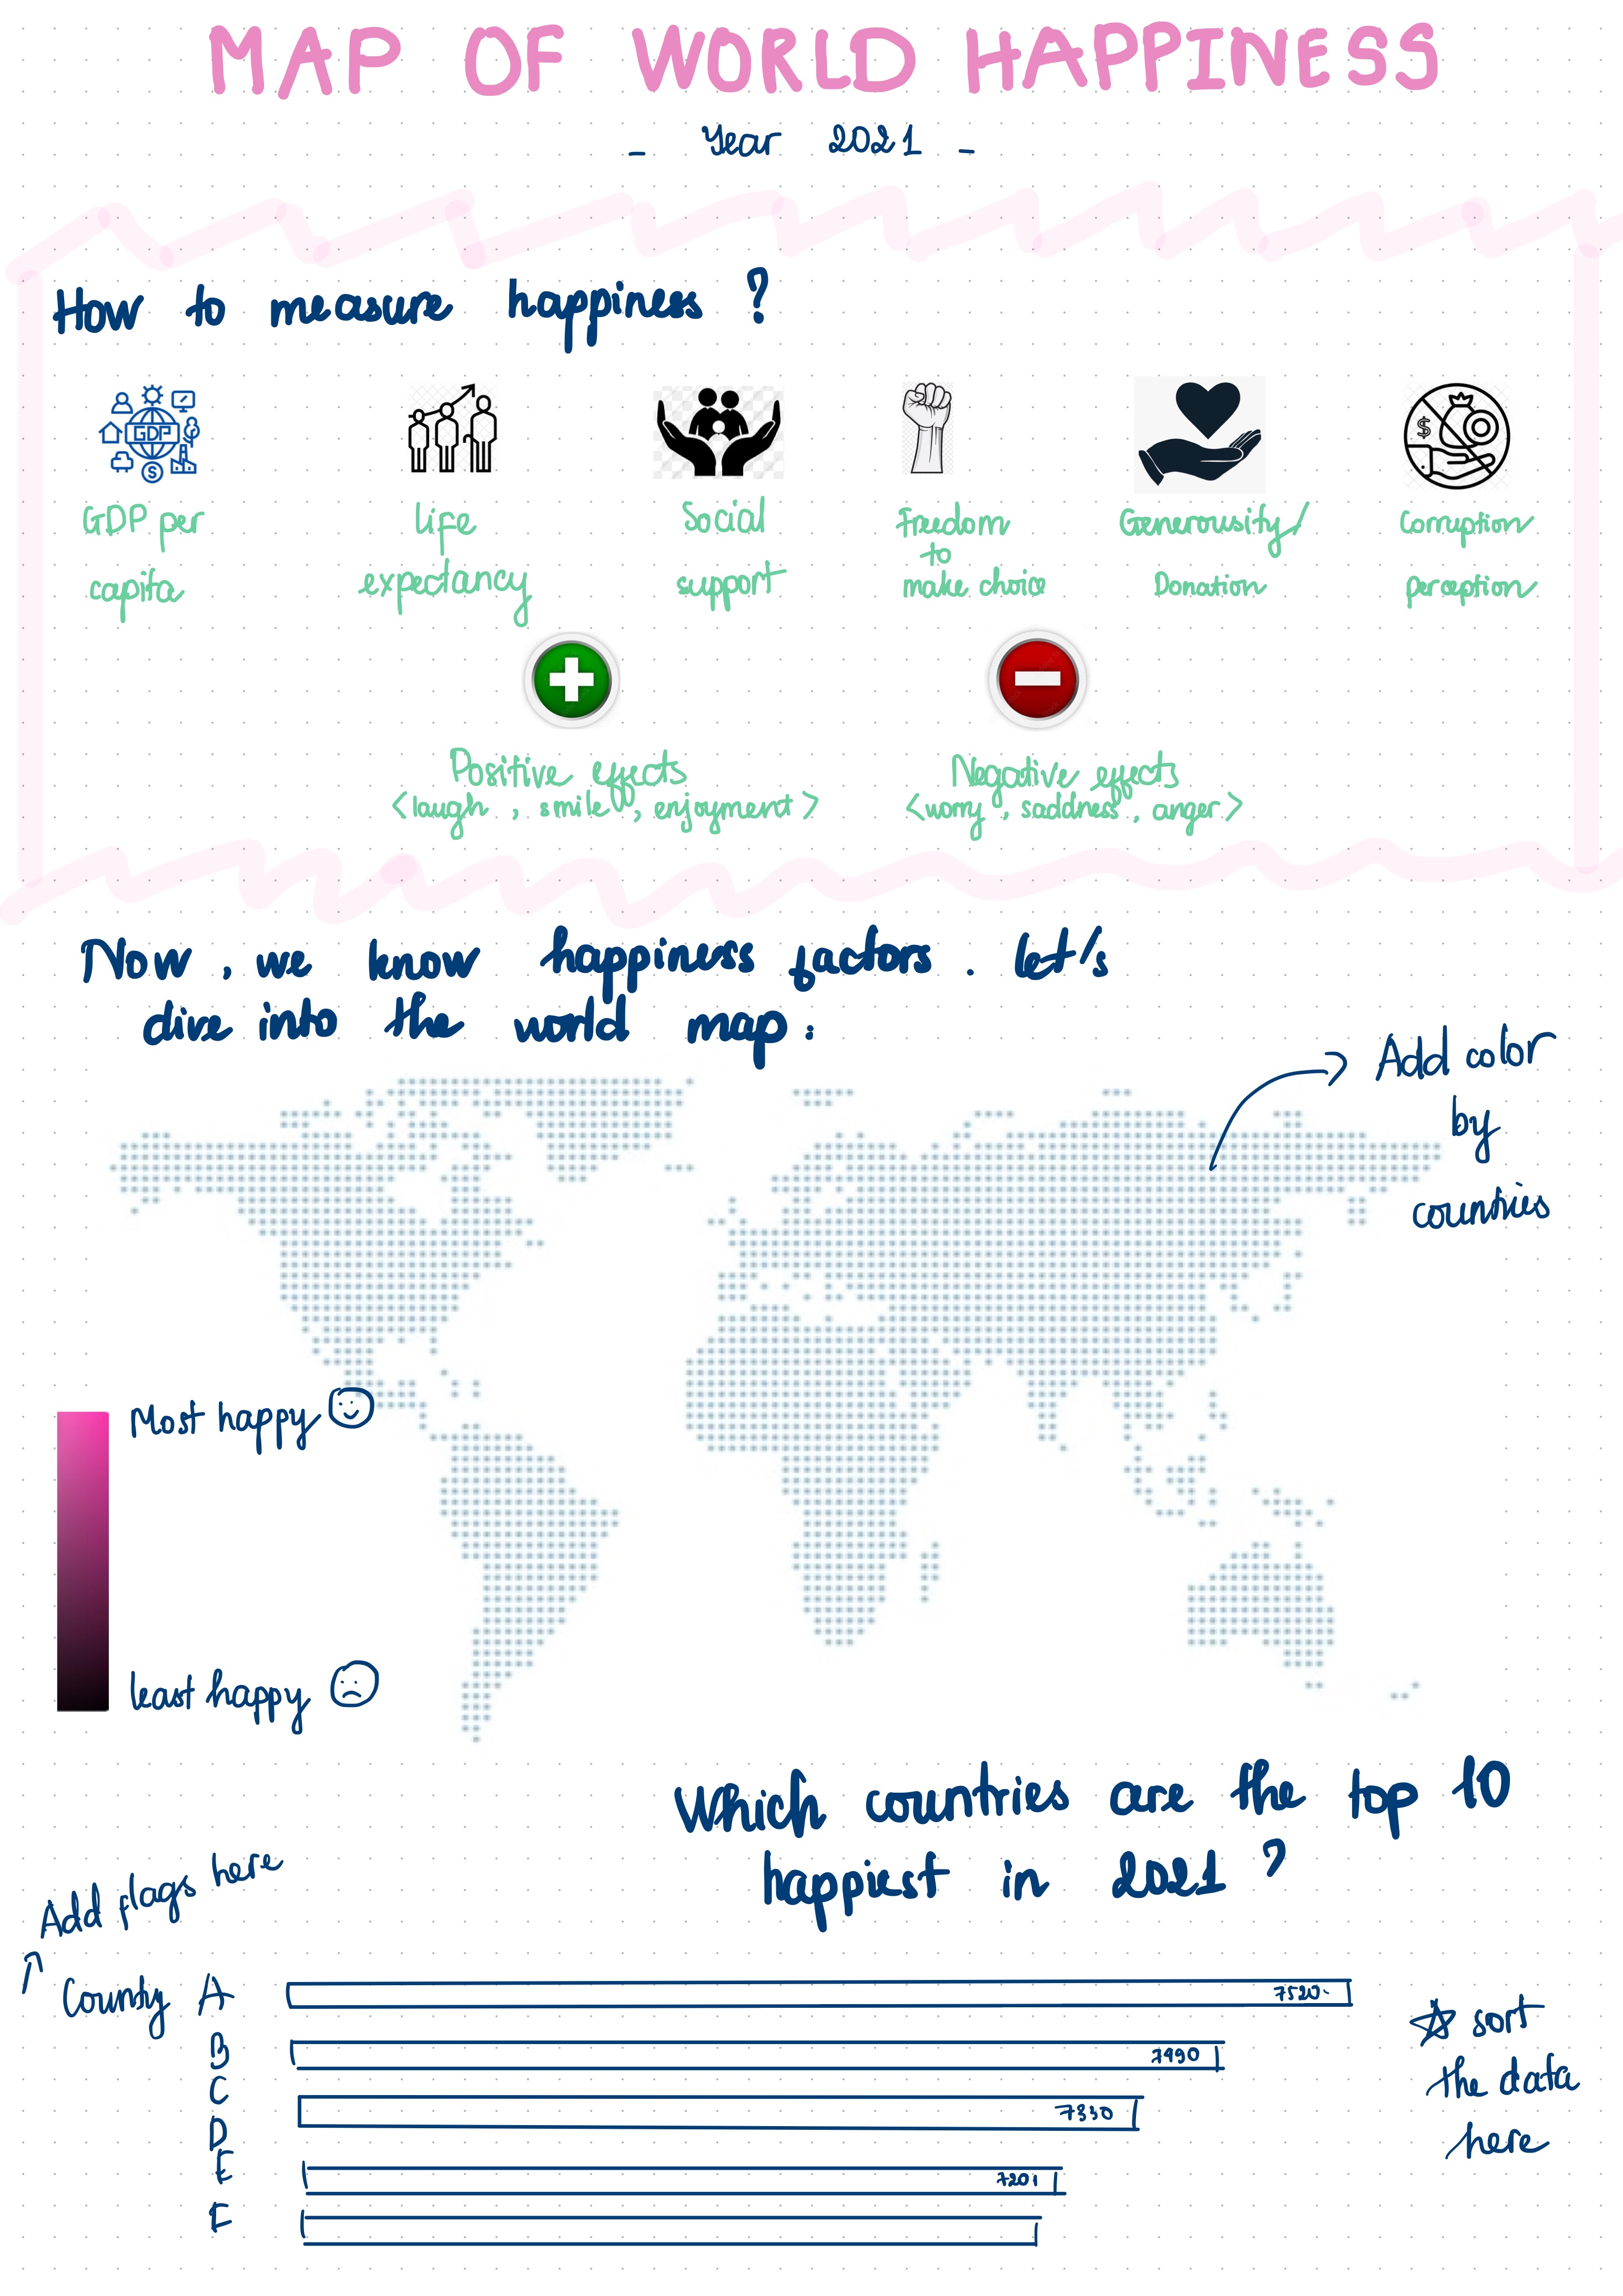 MAP OF WORLD HAPPINESS
- Year 2021 -
How to measure happiness ?
GDP
GDP per
capita
Life
expectancy
Social
support
Freedom
to
make choice
Generousity/
Donation
Corruption
perception
Positive effects
<laugh , smile , enjoyment >
Negative effects
<worry , saddness , anger >
Now , we know happiness factors . let's
dive into the world map :
Add color
by
countries
Most happy
least happy
Which countries are the top 10
happiest in 2021 ?
Add flags here
County A
7520
B
7490
C
7330
D
E
7201
F
☆ sort
the data
here